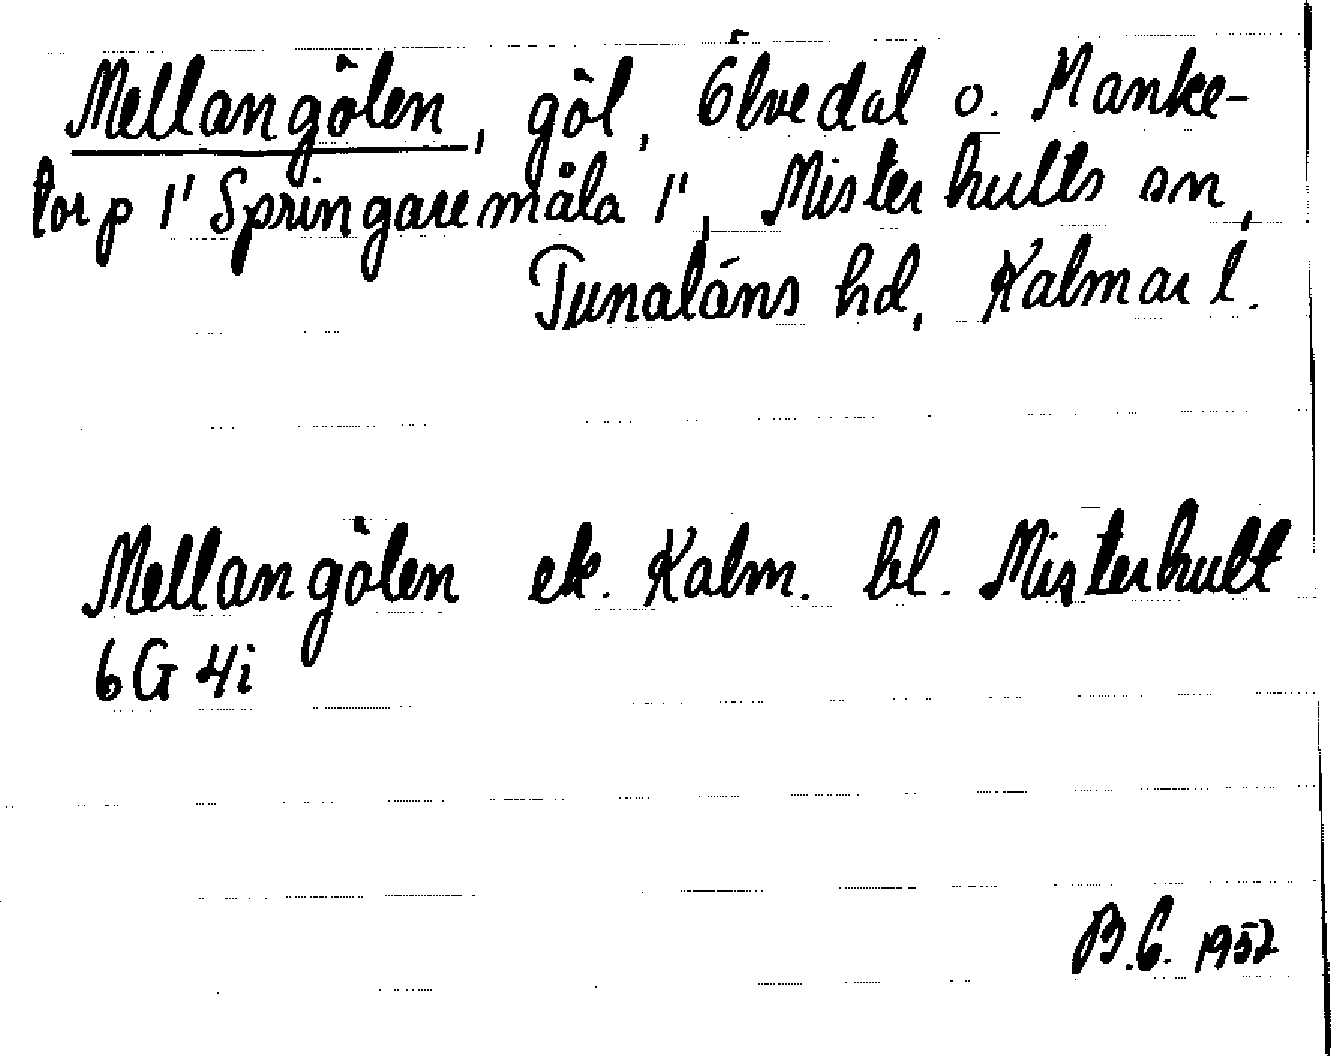 Mellangölen, göl, Ölvedal o. Manke-
torp 1' Springaremåla 1', Misterhults sn,
Tunaläns hd, Kalmar l.
Mellangölen ek. Kalm. bl. Misterhult
6G 4i
B.E. 1952